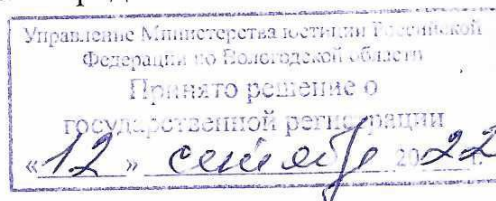 Управление Министерства юстиции Российской
Федерации по Вологодской области
Принято решение о
государственной регистрации
«12» сентября 2022